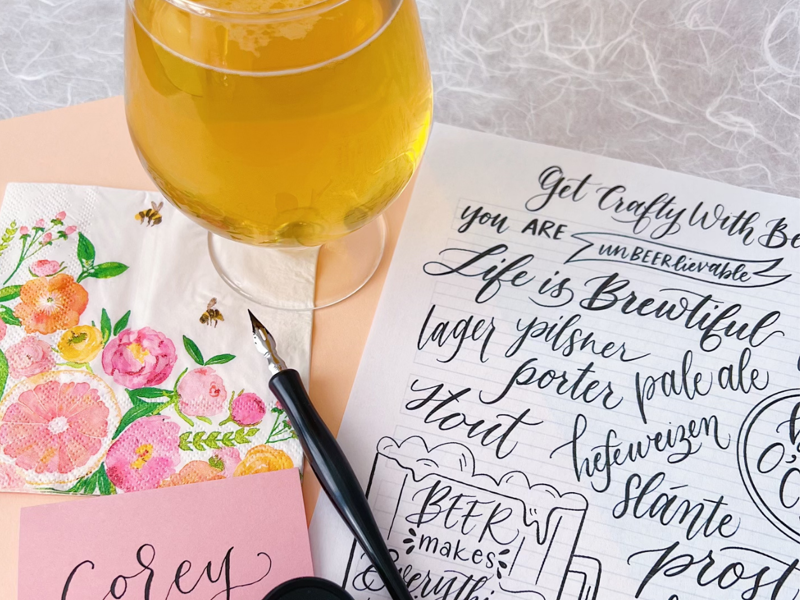 Get Crafty With
you ARE unBEERlievable
Life is Brewtiful
lager pilsner
porter pale ale
stout
hefeweizen
slánte
prost
BEER
makes
Corey